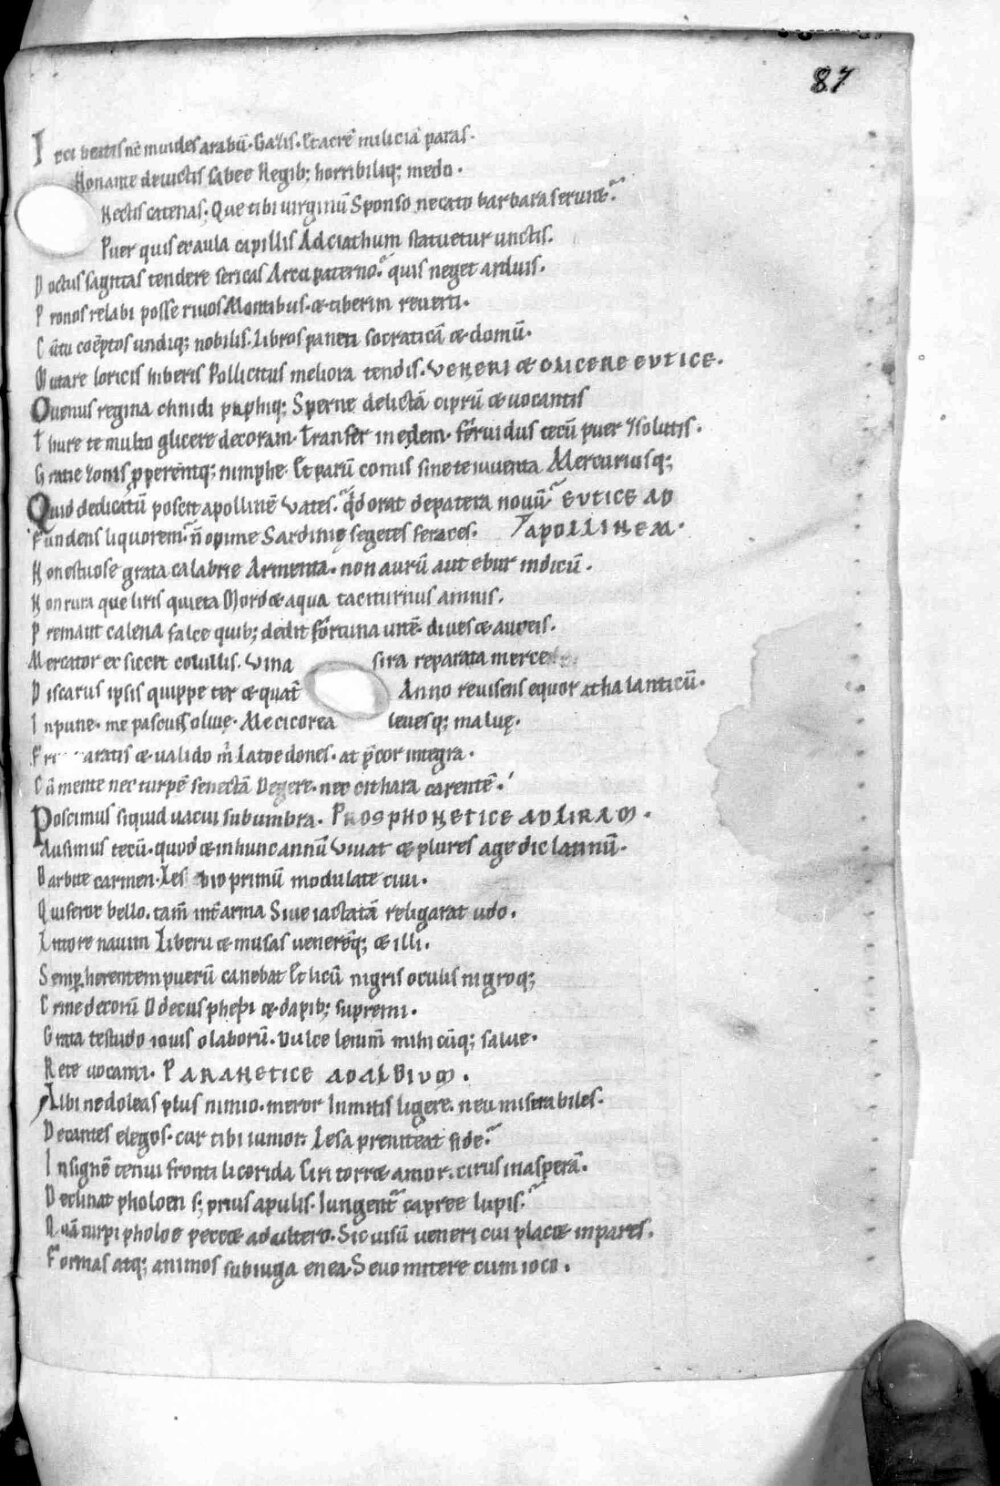 87
I cci beatis nc̄ inuides arabū. Gazis. Et acrē miliciā paras.
Non ante deuictis sabee Regib; horribiliq; medo.
Nectis catenas. Que tibi virginū Sponso necato barbara seruiet
Puer quis ex aula capillis Ad ciathum statuetur unctis.
Doctus sagittas tendere sericas Arcu paterno. quis neget arduis.
Pronos relabi posse riuos Montibus. & tiberim reuerti.
Cū tu coēptos undiq; nobilis. Libros paneti socraticā & domū.
Mutare loricis hiberis Pollicitus meliora tendis. VENERI & GLICERE EVTICE.
O uenus regina chnidi paphiq; Sperne delictā ciprū & uocantis
Thure te multo glicere decoram. Transfer in edem. feruidus tecū puer & solutis.
Gratie zonis pperentq; nimphe. Et parū comis sine te iuuenta Mercuriusq;
Quid dedicatū poscit apollinē vates. qd orat de patera nouū EVTICE AD
Fundens liquorem. n̄ opime Sardinię segetes feraces. APOLLINEM.
Non estuose grata calabrie Armenta. non aurū aut ebur indicū.
Non rura que liris quieta Mordæ aqua taciturnus amnis.
Premant calena falce quib; dedit fortuna uitē. diues & aureis.
Mercator ex siccet culullis. Vina sira reparata merce
Discarus ipsis quippe ter & quat̄ Anno reuisens equor athalanticū.
Inpune. me pascunt oliue. Me cicorea leuesq; maluę.
Fr aratis & ualido m̄ Latoe dones. at p̄cor integra.
Cū mente nec turpē senectā Degere. nec cithara carentē.
Poscimus siquid uacui sub umbra. PROSPHONETICE AD LIRAM.
Lusimus tecū. quod & in hunc annū Viuat & plures age dic latinū.
Barbite carmen. Les bio primū modulate ciui.
Qui ferox bello. tam̄ int̄ arma Siue iactatā religarat udo.
Litore nauim Liberū & musas ueneréq; & illi.
Semp̄ herentem puerū canebat Et licū nigris oculis nigroq;
Crine decorū O decus phebi & dapib; supremi.
Grata testudo iouis o laborū. Dulce lenim̄ mihi cūq; salue.
Rete uocanti. PARANETICE AD ALBIUM.
Albi ne doleas plus nimio. memor Inmitis ligere. neu miserabiles.
Decantes elegos. cur tibi iunior. Lesa preniteat fide.
Insignē tenui fronti licorida Ciri torret amor. cirus in asperā.
Declinat pholoen s; prius apulis. Iungent̄ capree lupis.
Quā turpi pholoe peccet adultero. Sic uisū ueneri cui placet inpares.
Formas atq; animos sub iuga enea. Seuo mitere cum ioco.